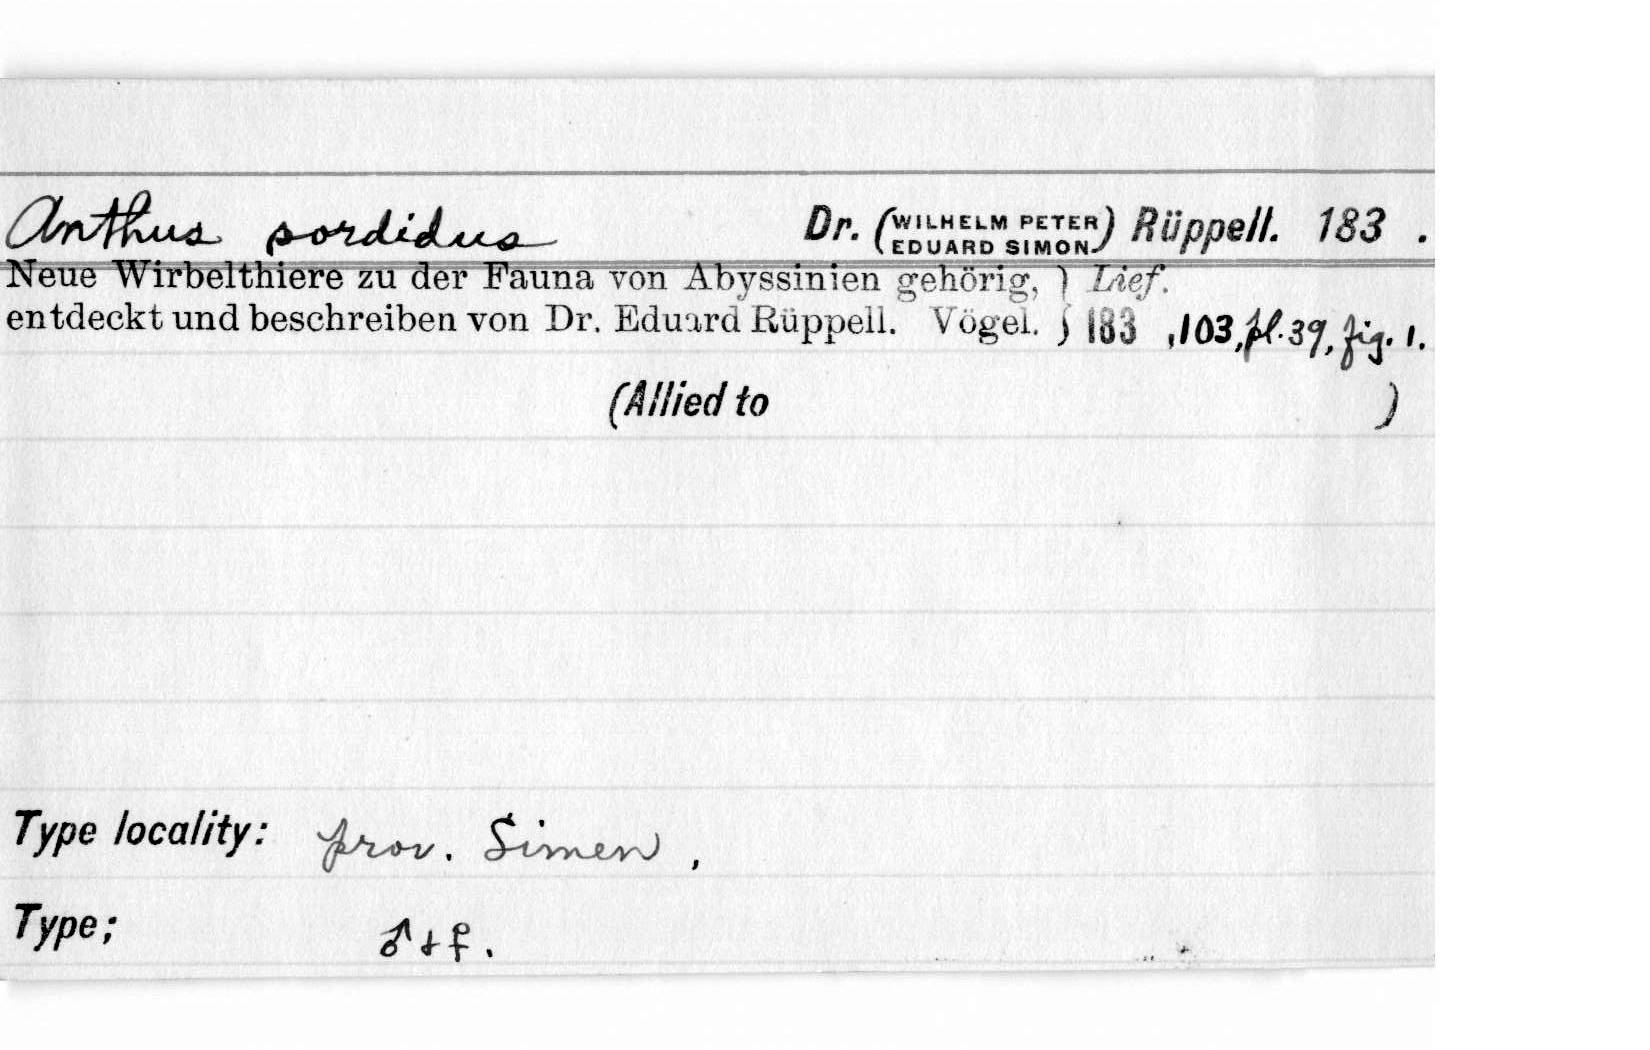 Anthus sordidus Dr. (WILHELM PETER EDUARD SIMON) Rüppell. 183 .
Neue Wirbelthiere zu der Fauna von Abyssinien gehörig, } Lief.
entdeckt und beschreiben von Dr. Eduard Rüppell. Vögel. } 183 ,103, pl. 39, fig. 1.
(Allied to )
Type locality: prov. Simen ,
Type; ♂ + ♀ .